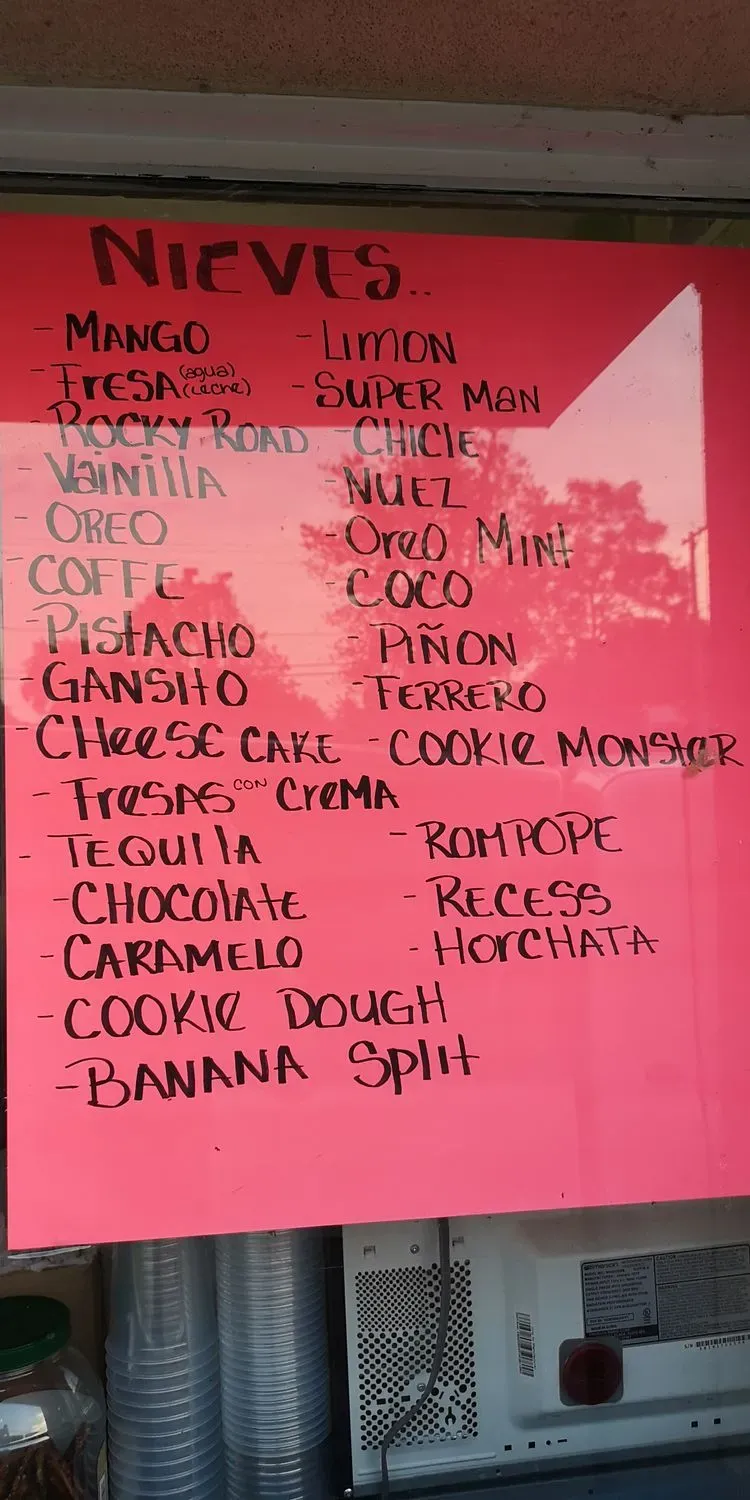 NIEVES..
- MANGO
- FresA (agua) (Leche)
- ROCKY ROAD
- VaiNillA
- OREO
- COFFE
- PIStACHO
- GANSItO
- CHeeSE CAKE
- FreSAS CON CreMA
- TEQUIlA
- CHOCOlAtE
- CARAMELO
- COOKIe DOUGH
- BANANA SplIt
- LImON
- SUPER MaN
- CHICIE
- NUEZ
- OreO MINt
- COCO
- PIÑON
- FERRERO
- COOKIe MONSteR
- ROMPOPE
- RECESS
- HOrCHATA